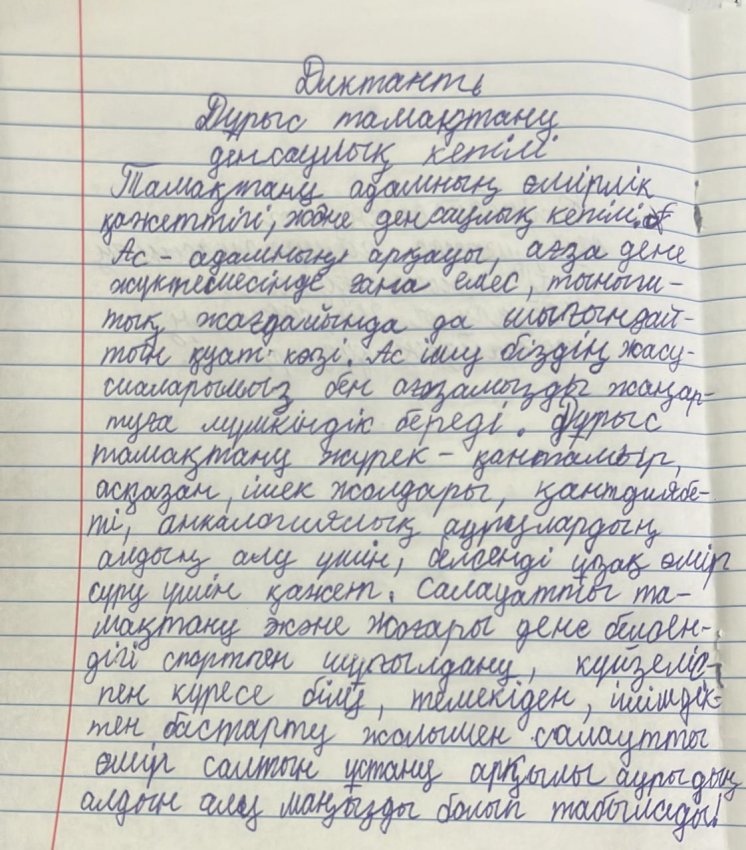 Диктанть
Дұрыс тамақтану
денсаулық кепілі
Тамақтану адамның өмірлік
қажеттігі, және денсаулық кепілі.
Ас – адамның арқауы, ағза дене
жүктемесінде ғана емес, тыныш-
тық жағдайында да шығындай-
тын қуат көзі. Ас ішу біздің жасу-
шаларымыз бен ағзамызды жаңар-
туға мүмкіндік береді. Дұрыс
тамақтану жүрек – қантамыр,
асқазан, ішек жолдары, қантдиябе-
ті, анкалогиялық аурулардың
алдың алу үшін, белсенді ұзақ өмір
сүру үшін қажет. Салауатты та-
мақтану және жоғары дене белсен-
дігі спортпен шұғылдану, күйзеліс-
пен күресе білу, темекіден, ішімдік-
тен бастарту жолымен салаутты
өмір салтын ұстану арқылы аурудың
алдын алу маңызды болып табылады!